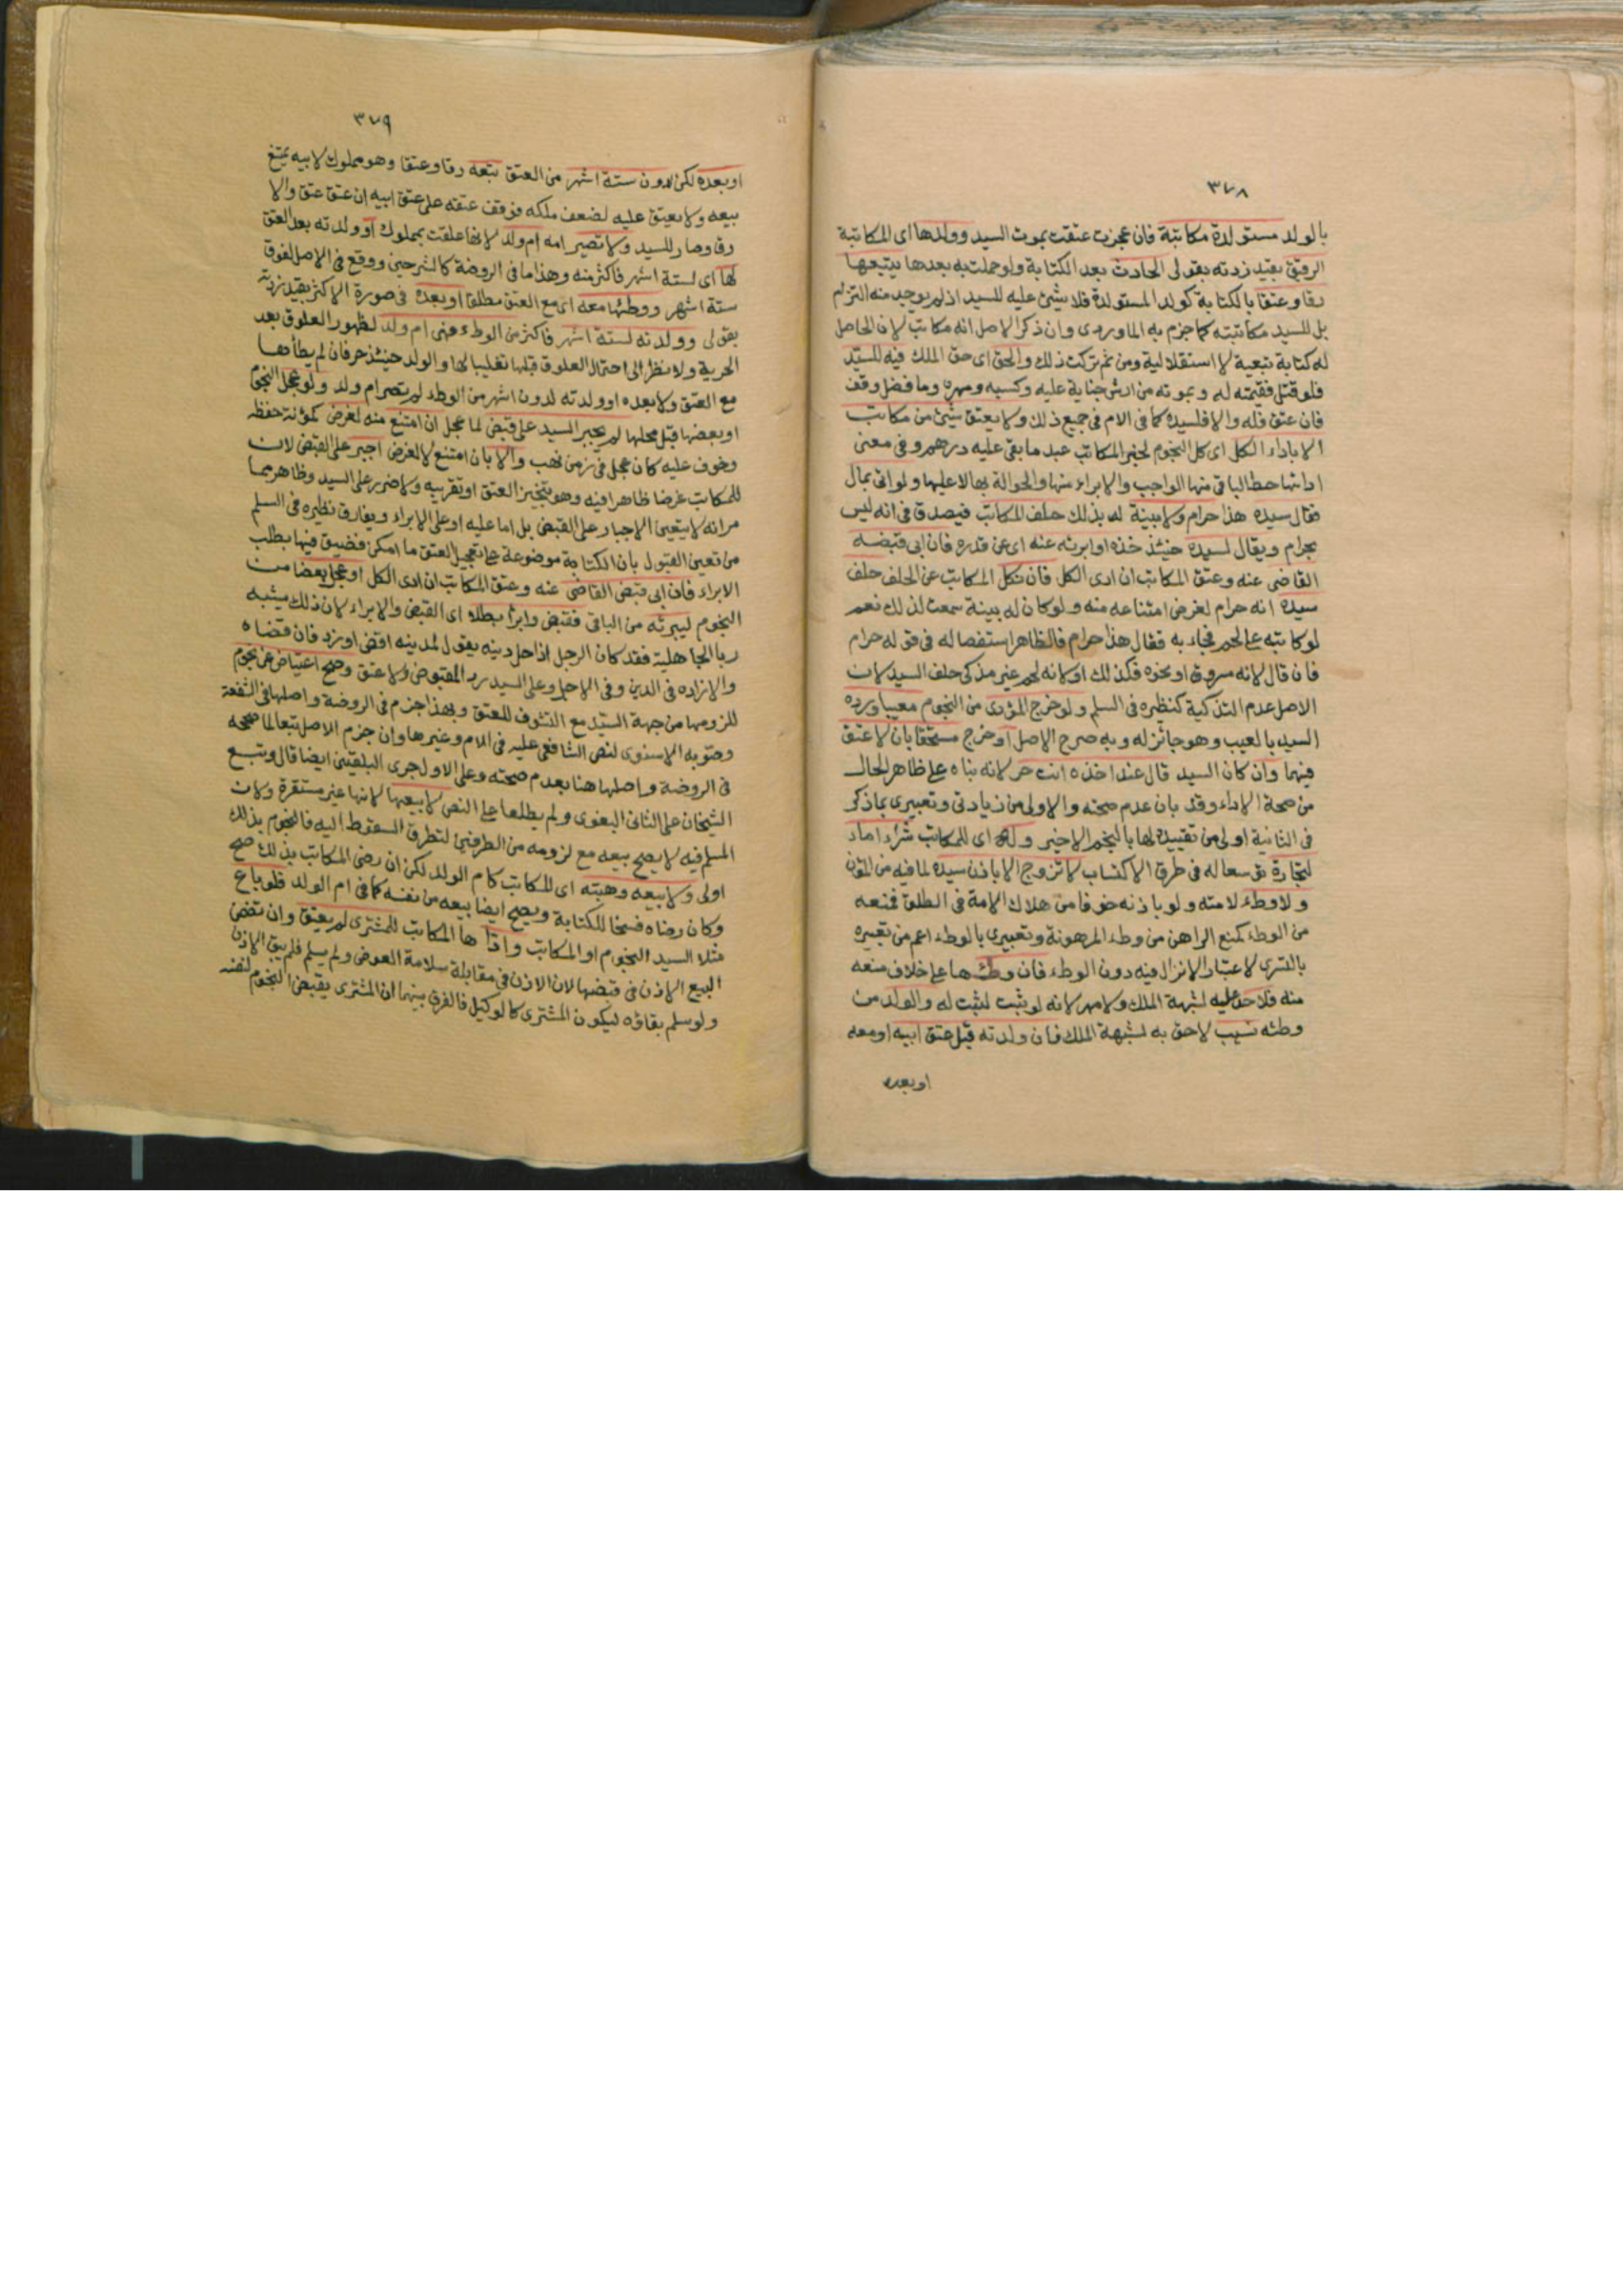 ٣٧٨
بالولد مستولدة مكاتبة فان عجزت عتقت بموت السيد وولدها اى المكاتبة
الرقيق بقيد زدته بقولى الحادث بعد الكتابة ولو حملت به بعدها يتبعها
رقا وعتقا بالكتابة كولد المستولدة فلا شئ عليه للسيد اذ لم يوجد منه التزام
بل للسيد مكاتبته كما جزم به الماوردى وان ذكر الاصل انه مكاتب لان الحاصل
له كتابة تبعية لا استقلالية ومن ثم تركت ذلك والحق اى حق الملك فيه للسيد
فلو قتل فقيمته له ويمونه من ارش جناية عليه وكسبه ومهره وما فضل وقف
فان عتق فله والا فلسيده كما فى الام فى جميع ذلك ولا يعتق شئ من مكاتب
الا باداء الكل اى كل النجوم لخبر المكاتب عبد ما بقى عليه درهم وفى معنى
ادائها حط الباقى منها الواجب والابراء منها والحوالة بها لا عليها ولو اتى بمال
فقال سيده هذا حرام ولا بينة له بذلك حلف المكاتب فيصدق فى انه ليس
بحرام ويقال لسيده حينئذ خذه او ابرئه عنه اى عن قدره فان ابى قبضه
القاضى عنه وعتق المكاتب ان ادى الكل فان نكل المكاتب عن الحلف حلف
سيده انه حرام لغرض امتناعه منه ولو كان له بينة سمعت لذلك نعم
لو كاتبه على لحم فجاء به فقال هذا حرام فالظاهر استفصاله فى قوله حرام
فان قال لانه مسروق او نحوه فكذلك او لانه لحم غير مذكى حلف السيد لان
الاصل عدم التذكية كنظيره فى السلم ولو خرج المؤدى من النجوم معيبا ورده
السيد بالعيب وهو جائز له وبه صرح الاصل او خرج مستحقا بان لا عتق
فيهما وان كان السيد قال عند اخذه انت حر لانه بناه على ظاهر الحال
من صحة الاداء وقد بان عدم صحته والاولى من زيادتى وتعبيرى بما ذكر
فى الثانية اولى من تقييده لها بالنجم الاخير وله اى للمكاتب شراء اماء
لتجارة توسعا له فى طرق الاكتساب لا تزوج الا باذن سيده لما فيه من المؤن
ولا وطء لامته ولو باذنه خوفا من هلاك الامة فى الطلق فمنعه
من الوطء كمنع الراهن من وطء المرهونة وتعبيرى بالوطء اعم من تعبيره
بالتسرى لاعتبار الانزال فيه دون الوطء فان وطئها على خلاف منعه
منه فلا حد عليه لشبهة الملك ولا مهر لانه لو ثبت لثبت له والولد من
وطئه نسيب لاحق به لشبهة الملك فان ولدته قبل عتق ابيه او معه
او بعده
٣٧٩
او بعده لكن لدون ستة اشهر من العتق تبعه رقا وعتقا وهو مملوك لابيه يمتنع
بيعه ولا يعتق عليه لضعف ملكه فوقف عتقه على عتق ابيه ان عتق عتق والا
رق وصار للسيد ولا تصير امه ام ولد لانها علقت بمملوك او ولدته بعد العتق
لها اى لستة اشهر فاكثر منه وهذا ما فى الروضة كالشرحين ووقع فى الاصل لفوق
ستة اشهر ووطئها معه اى مع العتق مطلقا او بعده فى صورة الاكثر بقيد زدته
بقولى وولدته لستة اشهر فاكثر من الوطء فهى ام ولد لظهور العلوق بعد
الحرية ولا نظر الى احتمال العلوق قبلها تغليبا لها والولد حينئذ حر فان لم يطأها
مع العتق ولا بعده او ولدته لدون اشهر من الوطء لم تصر ام ولد ولو عجل النجوم
او بعضها قبل محلها لم يجبر السيد على قبض لما عجل ان امتنع منه لغرض كمؤنة حفظه
وخوف عليه كان عجل فى زمن نهب والا بان امتنع لا لغرض اجبر على القبض لان
للمكاتب غرضا ظاهرا فيه وهو تنجيز العتق او تقريبه ولا ضرر على السيد وظاهر مما
مر انه لا يتعين الاجبار على القبض بل اما عليه او على الابراء ويفارق نظيره فى السلم
من تعين القبول بان الكتابة موضوعة على تعجيل العتق ما امكن فضيق فيها بطلب
الابراء فان ابى قبض القاضى عنه وعتق المكاتب ان ادى الكل او عجل بعضا من
النجوم ليبرئه من الباقى فقبض وابرأ بطلا اى القبض والابراء لان ذلك يشبه
ربا الجاهلية فقد كان الرجل اذا حل دينه يقول لمدينه اقض او زد فان قضاه
والا زاده فى الدين وفى الاجل وعلى السيد رد المقبوض ولا عتق وصح اعتياض عن نجوم
للزومها من جهة السيد مع التشوف للعتق وبهذا جزم فى الروضة واصلها فى الشفعة
وصوبه الاسنوى لنص الشافعى عليه فى الام وغيرها وان جزم الاصل تبعا لما صححه
فى الروضة واصلها هنا بعدم صحته وعلى الاول جرى البلقينى ايضا قال وتبع
الشيخان على الثانى البغوى ولم يطلعا على النص لا بيعها لانها غير مستقرة ولان
المسلم فيه لا يصح بيعه مع لزومه من الطرفين لتطرق السقوط اليه فالنجوم بذلك
اولى ولا بيعه وهبته اى المكاتب كام الولد لكن ان رضى المكاتب بذلك صح
وكان رضاه فسخا للكتابة ويصح ايضا بيعه من نفسه كما فى ام الولد فلو باع
مثلا السيد النجوم او المكاتب واداها المكاتب للمشترى لم يعتق وان تضمن
البيع الاذن فى قبضها لان الاذن فى مقابلة سلامة العوض ولم يسلم فلم يبق الاذن
ولو سلم بقاؤه ليكون المشترى كالوكيل فالفرق بينهما ان المشترى يقبض النجوم لنفسه